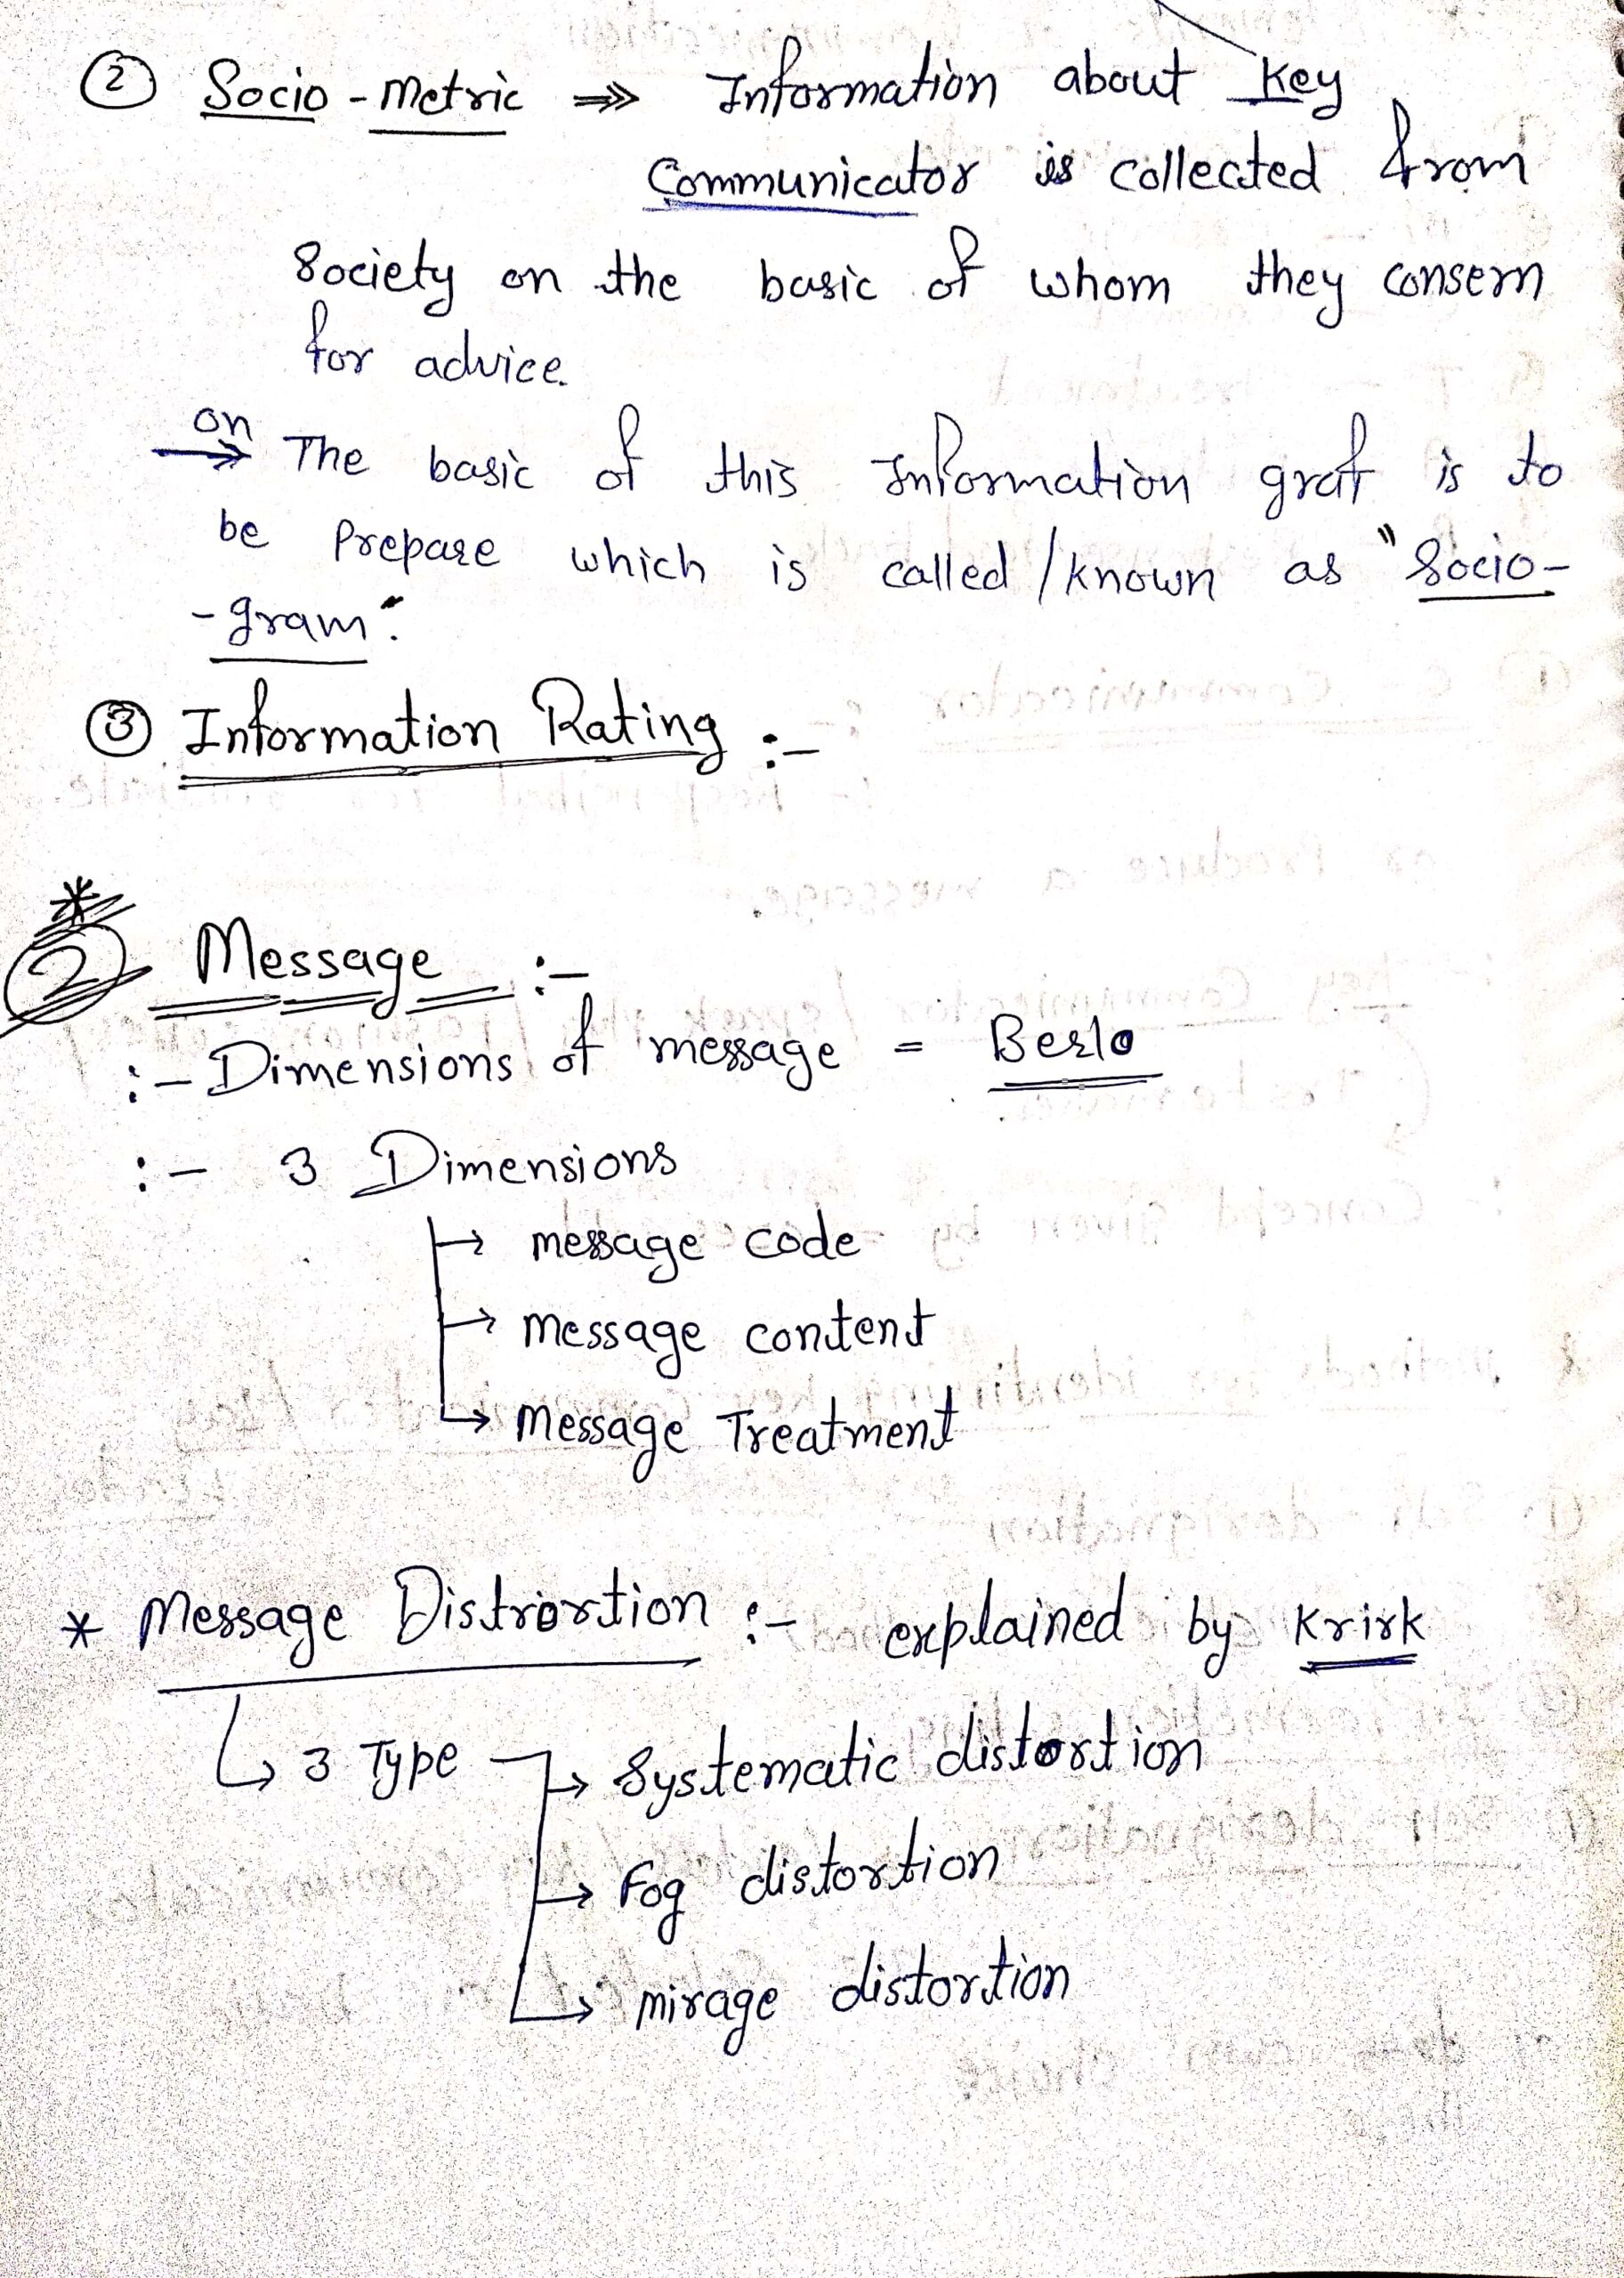 ② Socio - Metric ⇒> Information about Key
Communicator is collected from
Society on the basic of whom they consern
for advice.
on
→ The basic of this Information graf is to
be Prepare which is called / known as "Socio-
- gram".
③ Information Rating :-
*
② Message :-
:- Dimensions of message = Berlo
:- 3 Dimensions
→ message code
→ message content
→ Message Treatment
* Message Distriortion :- explained by Krirk
↳ 3 Type → Systematic distortion
→ Fog distortion
→ mirage distortion